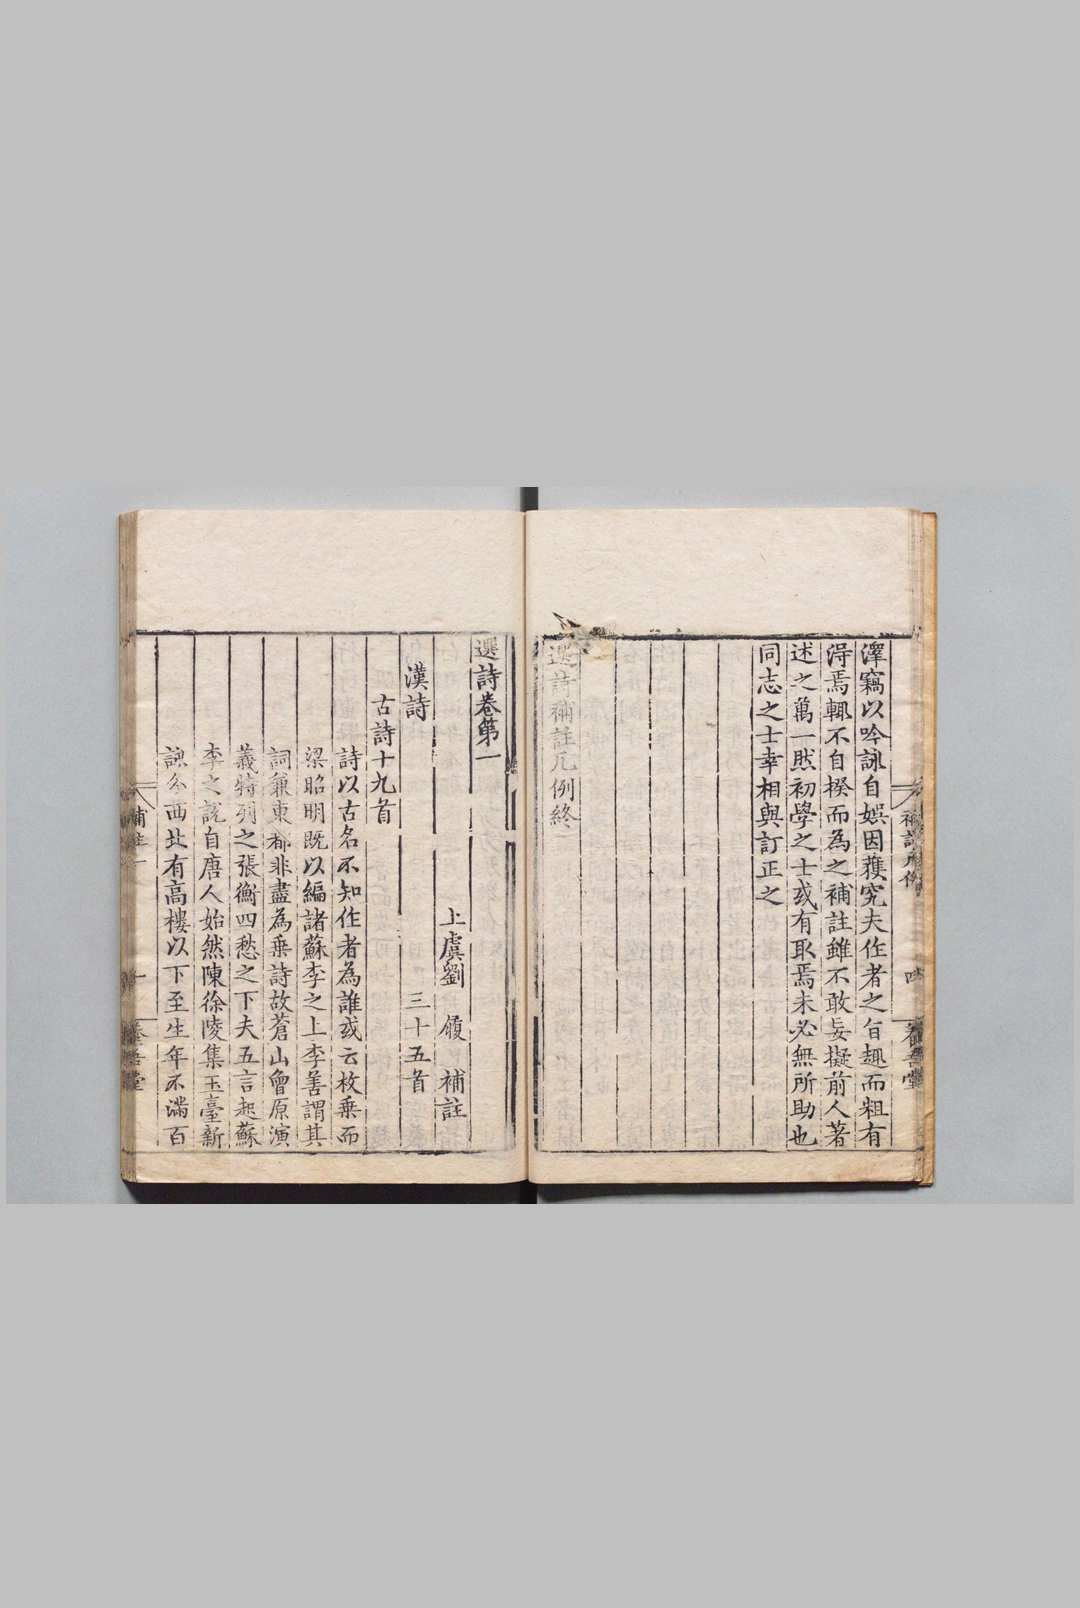 澤竊以吟詠自娛因蒐究夫作者之旨趣而粗有
得焉輒不自揆而為之補註雖不敢妄擬前人著
述之萬一然初學之士或有取焉未必無所助也
同志之士幸相與訂正之
選詩補註凡例終
選詩卷第一
上虞劉 履 補註
漢詩 三十五首
古詩十九首
詩以古名不知作者為誰或云枚乗而
梁昭明既以編諸蘇李之上李善謂其
詞兼東都非盡為乗詩故蒼山曾原演
義特列之張衡四愁之下夫五言起蘇
李之說自唐人始然陳徐陵集玉臺新
詠分西北有高樓以下至生年不滿百
補註凡例
四
養吾堂
補註一
一
養吾堂